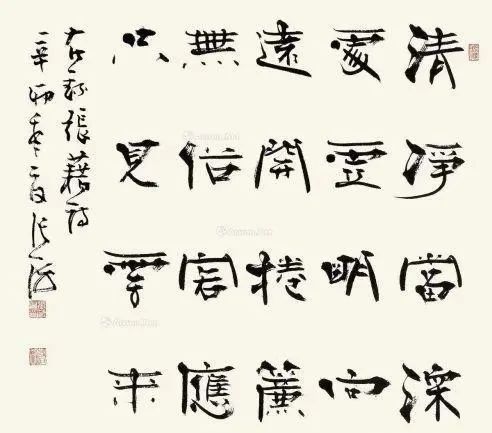 清淨當深
處虛明向
遠開捲簾
無俗客應
只見雲来
右錄張藉詩
辛卯